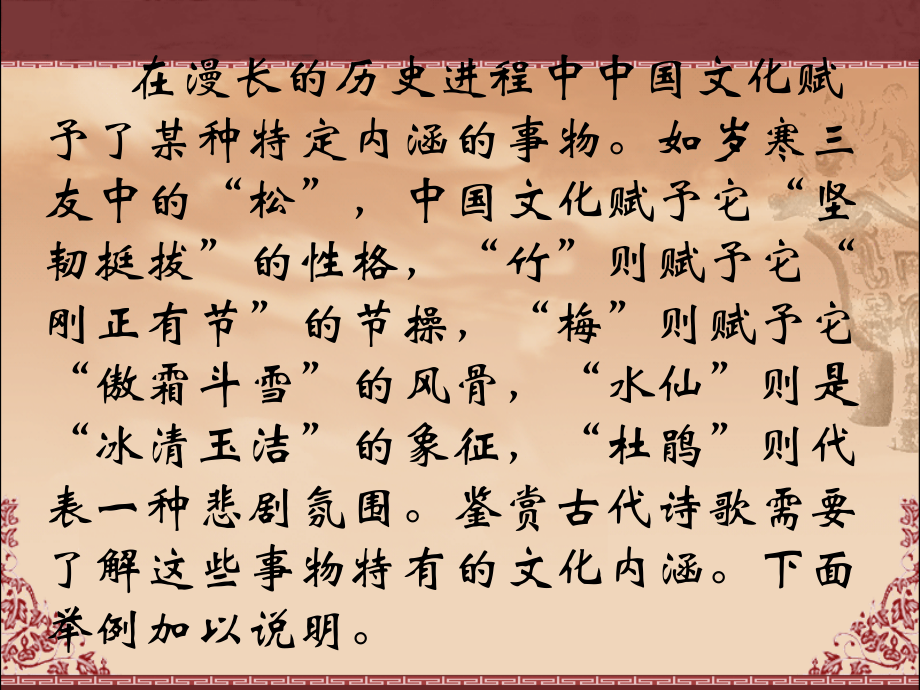 在漫长的历史进程中中国文化赋
予了某种特定内涵的事物。如岁寒三
友中的“松”，中国文化赋予它“坚
韧挺拔”的性格，“竹”则赋予它“
刚正有节”的节操，“梅”则赋予它
“傲霜斗雪”的风骨，“水仙”则是
“冰清玉洁”的象征，“杜鹃”则代
表一种悲剧氛围。鉴赏古代诗歌需要
了解这些事物特有的文化内涵。下面
举例加以说明。